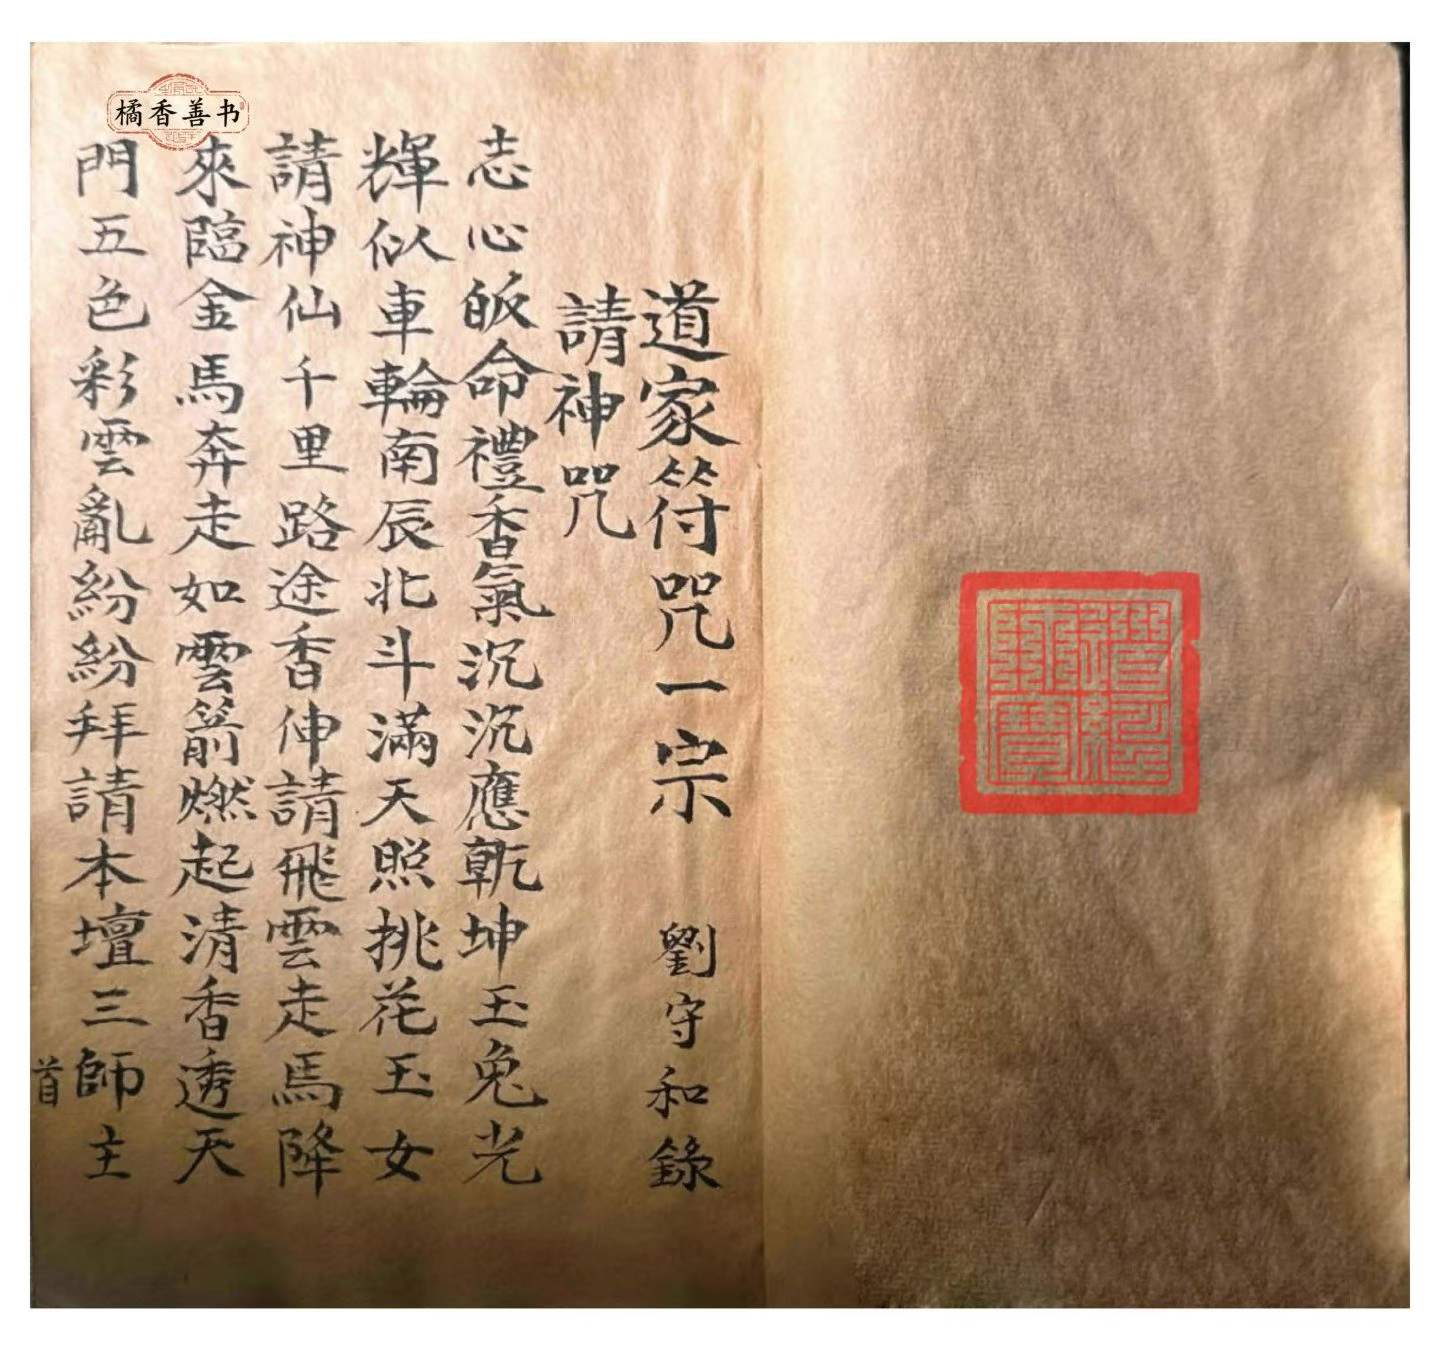 道家符咒一宗 劉守和錄
請神咒
志心皈命禮香氣沉沉應乾坤玉兔光
輝似車輪南辰北斗滿天照挑花玉女
請神仙千里路途香伸請飛雲走馬降
來臨金馬奔走如雲箭燃起清香透天
門五色彩雲亂紛紛拜請本壇三師主
首
橘香善书